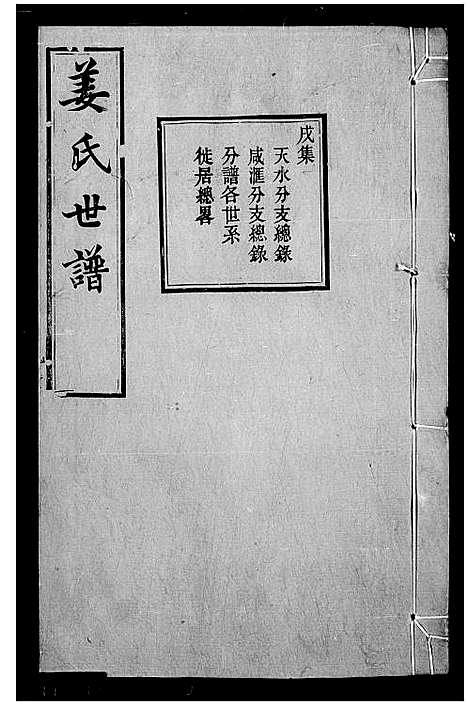 姜氏世譜
戌集
天水分支總錄
咸滙分支總錄
分譜各世系
徙居總畧